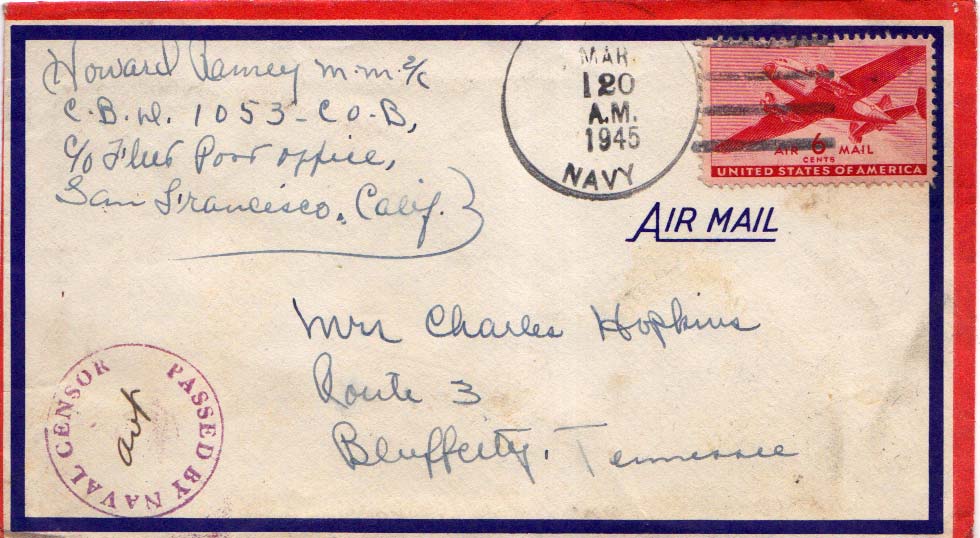 Howard Ramey M.M. 2/c
C.B.D. 1053 - CO-B,
c/o Fleet Post office,
San Francisco, Calif.
MAR
120
A.M.
1945
NAVY
AIR 6 MAIL
CENTS
UNITED STATES OF AMERICA
AIR MAIL
Mrs Charles Hopkins
Route 3
Bluffcity, Tennessee
PASSED BY NAVAL CENSOR